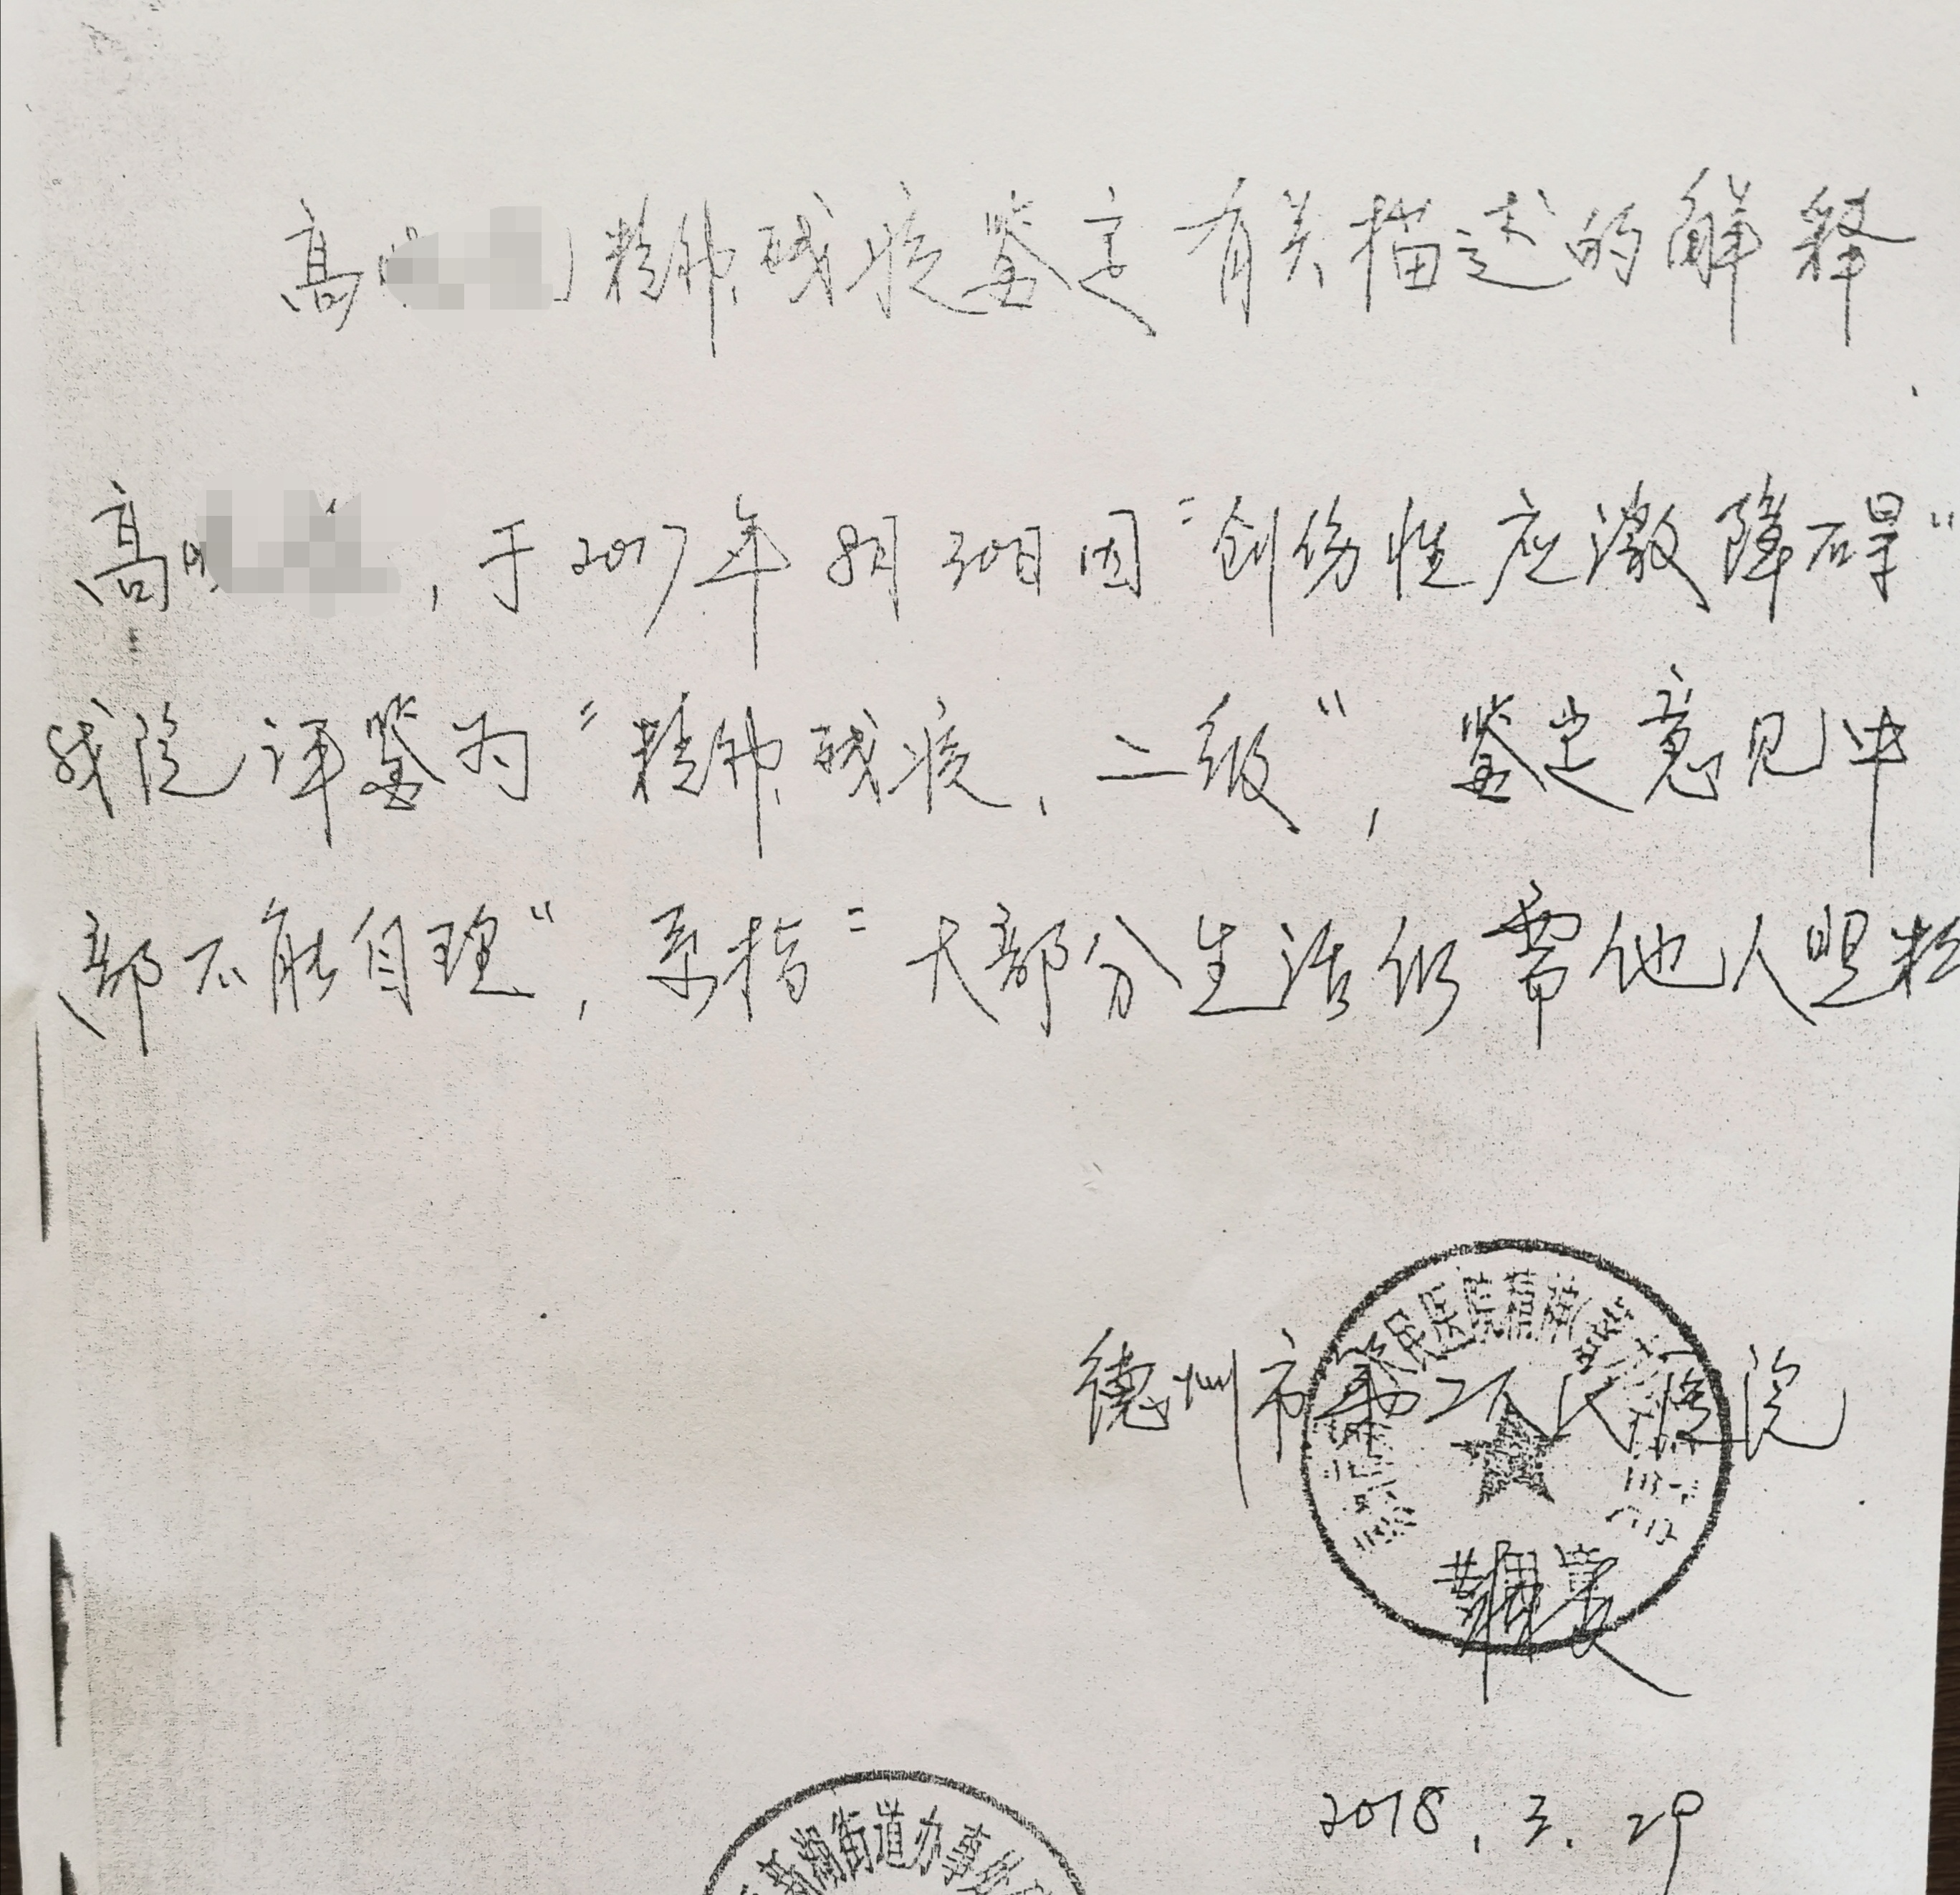 高 精神残疾鉴定有关描述的解释
高 ，于2017年8月30日因“创伤性应激障碍”
我院评鉴为“精神残疾，二级”，鉴定意见中
部不能自理”，系指“大部分生活仍需他人照
德州市第二人民医院
2018.3.29
新湖街道办事